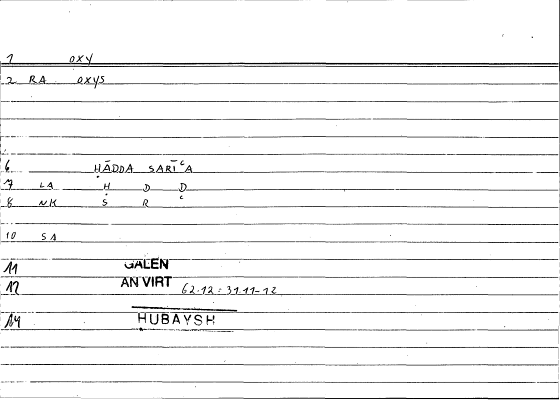 1 oxy
2 RA oxys
6 ḤĀDDA SARĪʿA
7 LA Ḥ D D
8 NK S R ʿ
10 SA
11 GALEN
12 AN VIRT 62.12 : 31.11-12
14 HUBAYSH